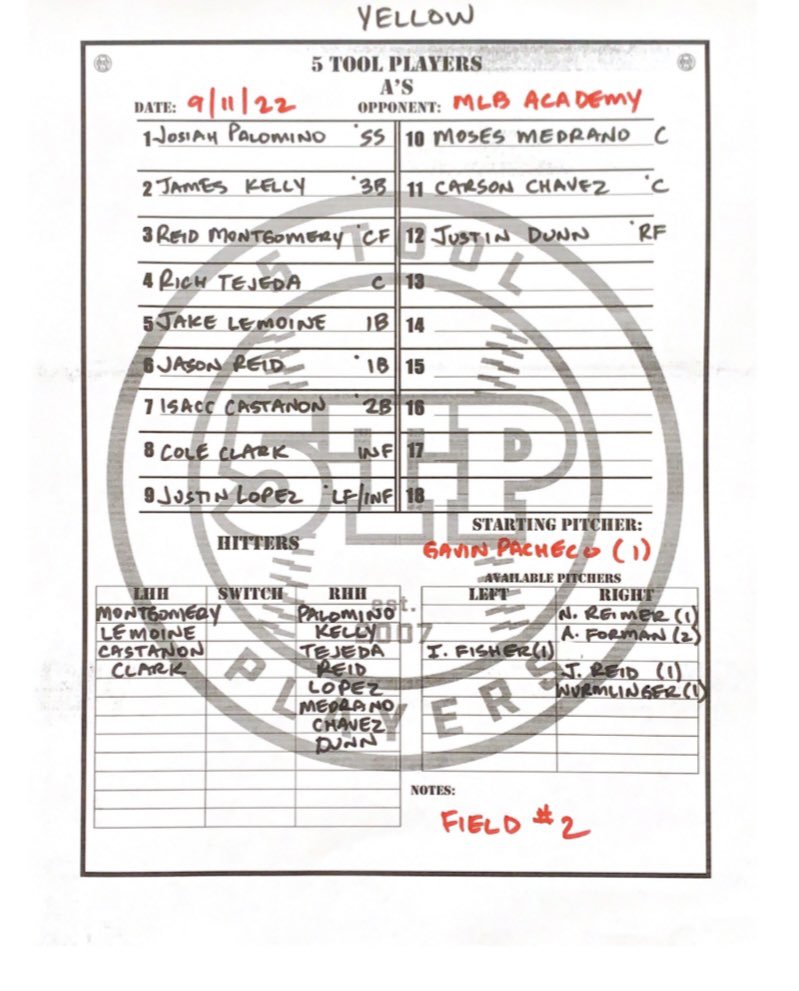 YELLOW
5 TOOL PLAYERS
A'S
DATE: 9/11/22 OPPONENT: MLB ACADEMY
1 JOSIAH PALOMINO SS
2 JAMES KELLY 3B
3 REID MONTGOMERY CF
4 RICH TEJEDA C
5 JAKE LEMOINE 1B
6 JASON REID 1B
7 ISACC CASTANON 2B
8 COLE CLARK INF
9 JUSTIN LOPEZ LF/INF
10 MOSES MEDRANO C
11 CARSON CHAVEZ C
12 JUSTIN DUNN RF
13
14
15
16
17
18
STARTING PITCHER:
GAVIN PACHECO (1)
HITTERS
LHH SWITCH RHH
MONTGOMERY PALOMINO
LEMOINE KELLY
CASTANON TEJEDA
CLARK REID
LOPEZ
MEDRANO
CHAVEZ
DUNN
AVAILABLE PITCHERS
LEFT RIGHT
N. REIMER (1)
A. FORMAN (2)
I. FISHER (1)
J. REID (1)
WURMLINGER (1)
NOTES:
FIELD #2
5 TOOL
5TP
est.
2007
PLAYERS